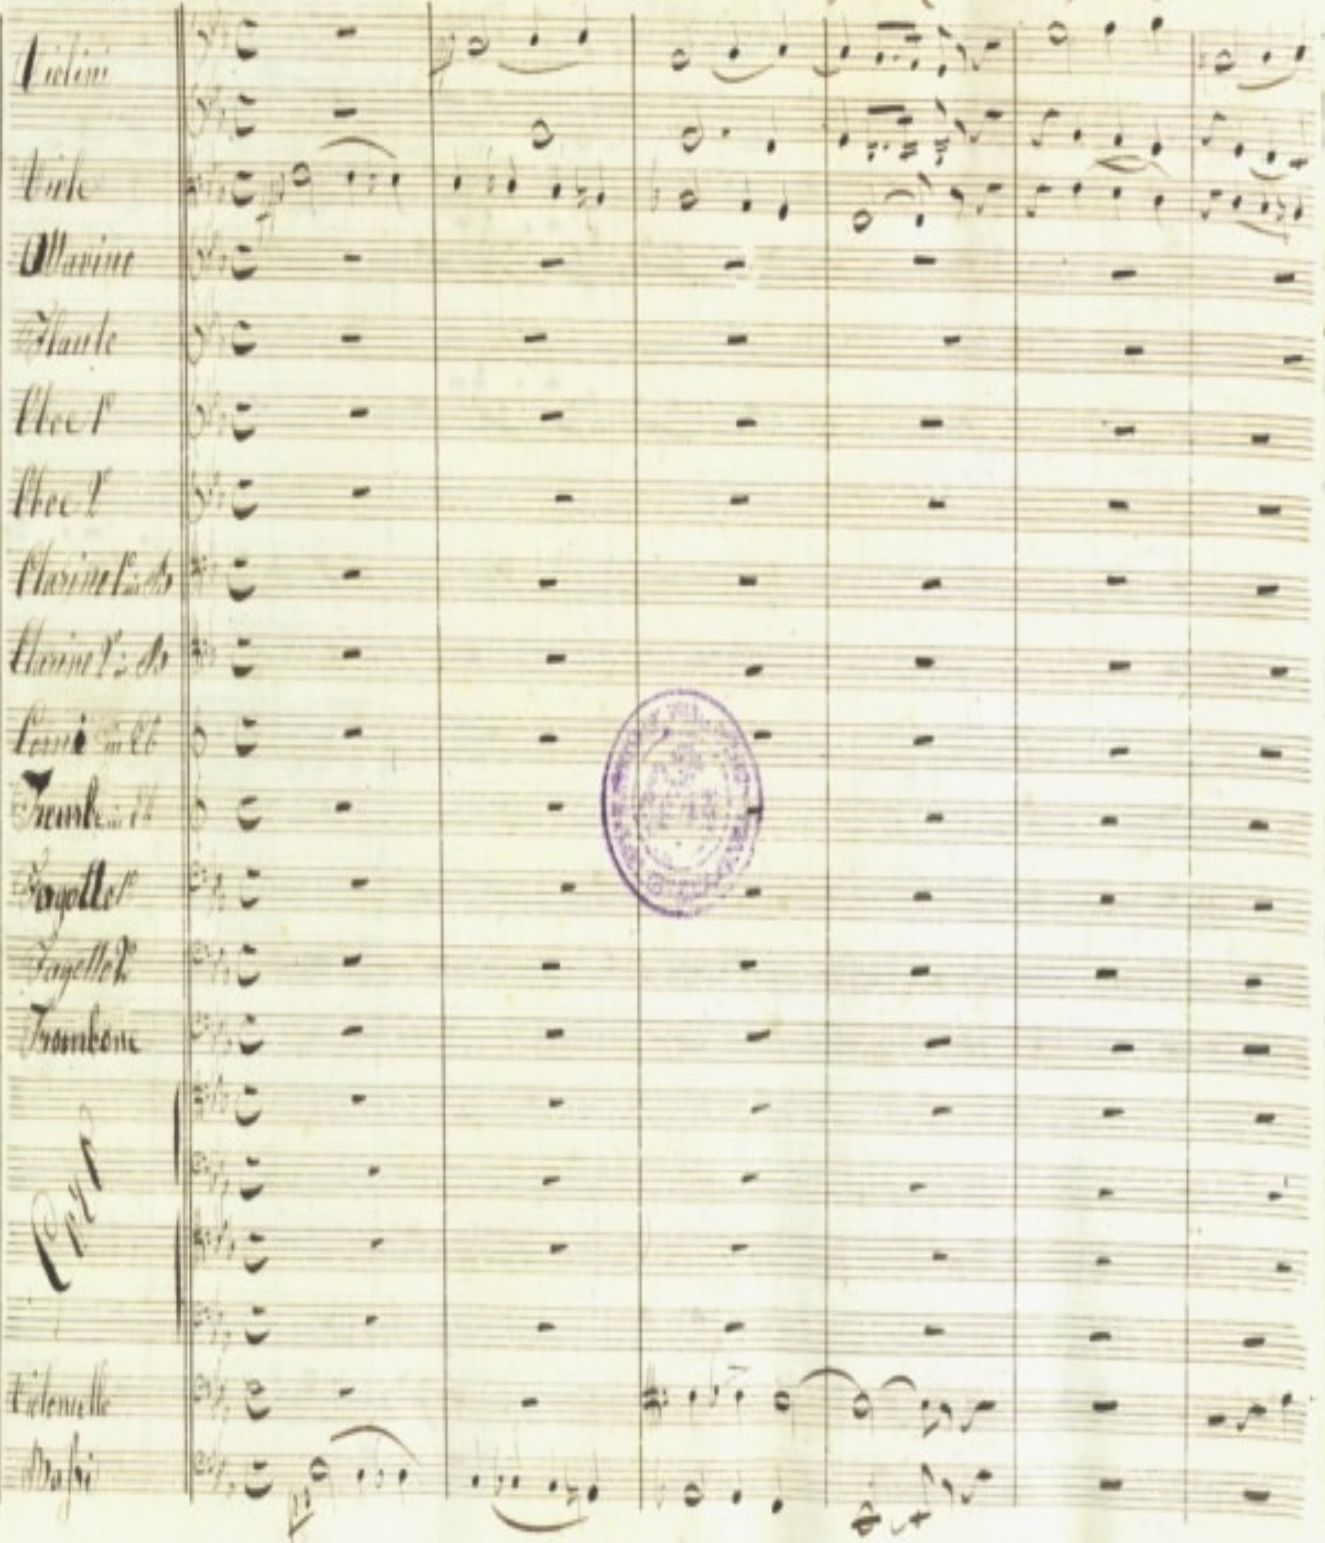 Violini
Viole
Ottavino
Flauto
Oboe 1º
Oboe 2º
Clarino 1º in B
Clarino 2º in B
Corni in Eb
Trombe in Eb
Fagotto 1º
Fagotto 2º
Trombone
Violoncello
Bassi